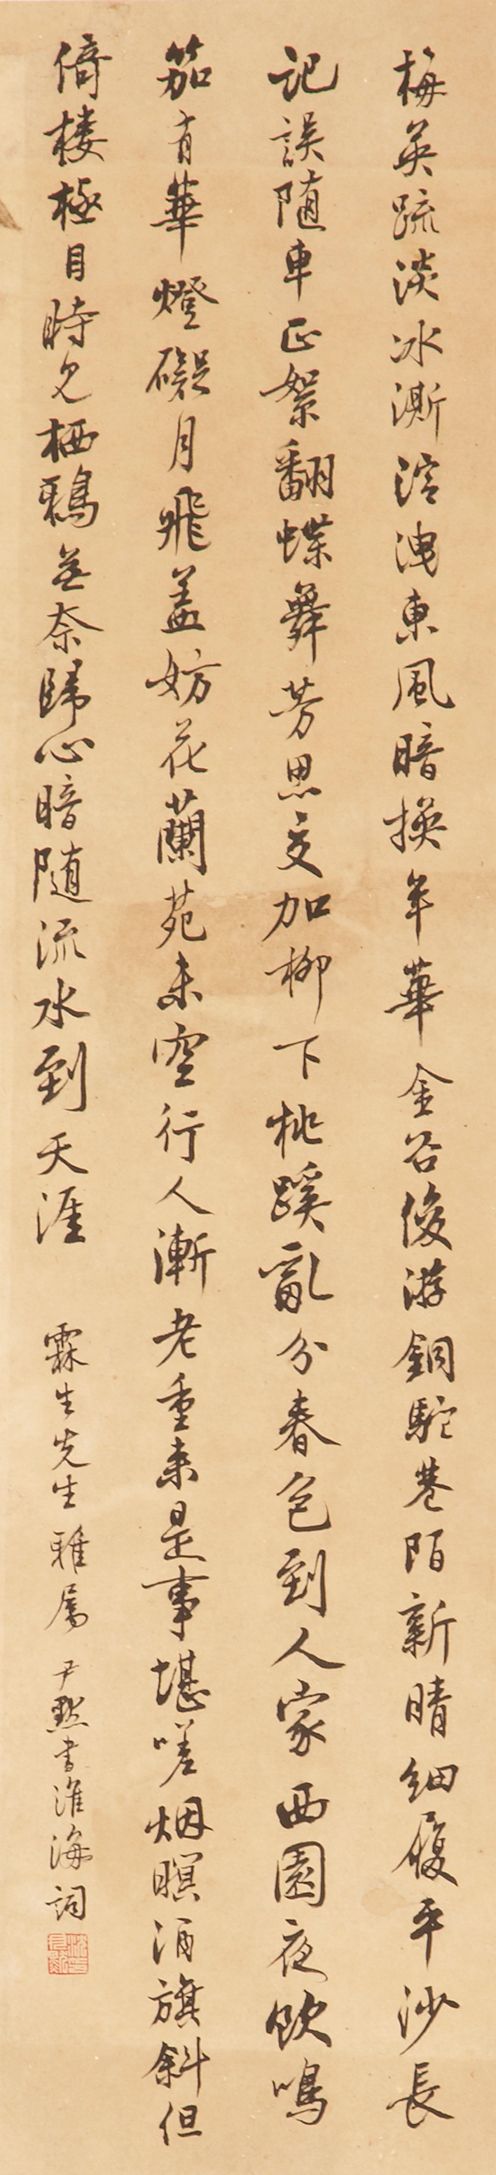 梅英疏淡冰澌溶洩東風暗換年華金谷俊游銅駝巷陌新晴細履平沙長
記誤随車正絮翻蝶舞芳思交加柳下桃蹊亂分春色到人家西園夜飲鳴
笳有華燈礙月飛蓋妨花蘭苑未空行人漸老重来是事堪嗟烟暝酒旗斜但
倚樓極目時見栖鴉無奈歸心暗随流水到天涯
霖生先生雅属 尹默書淮海詞